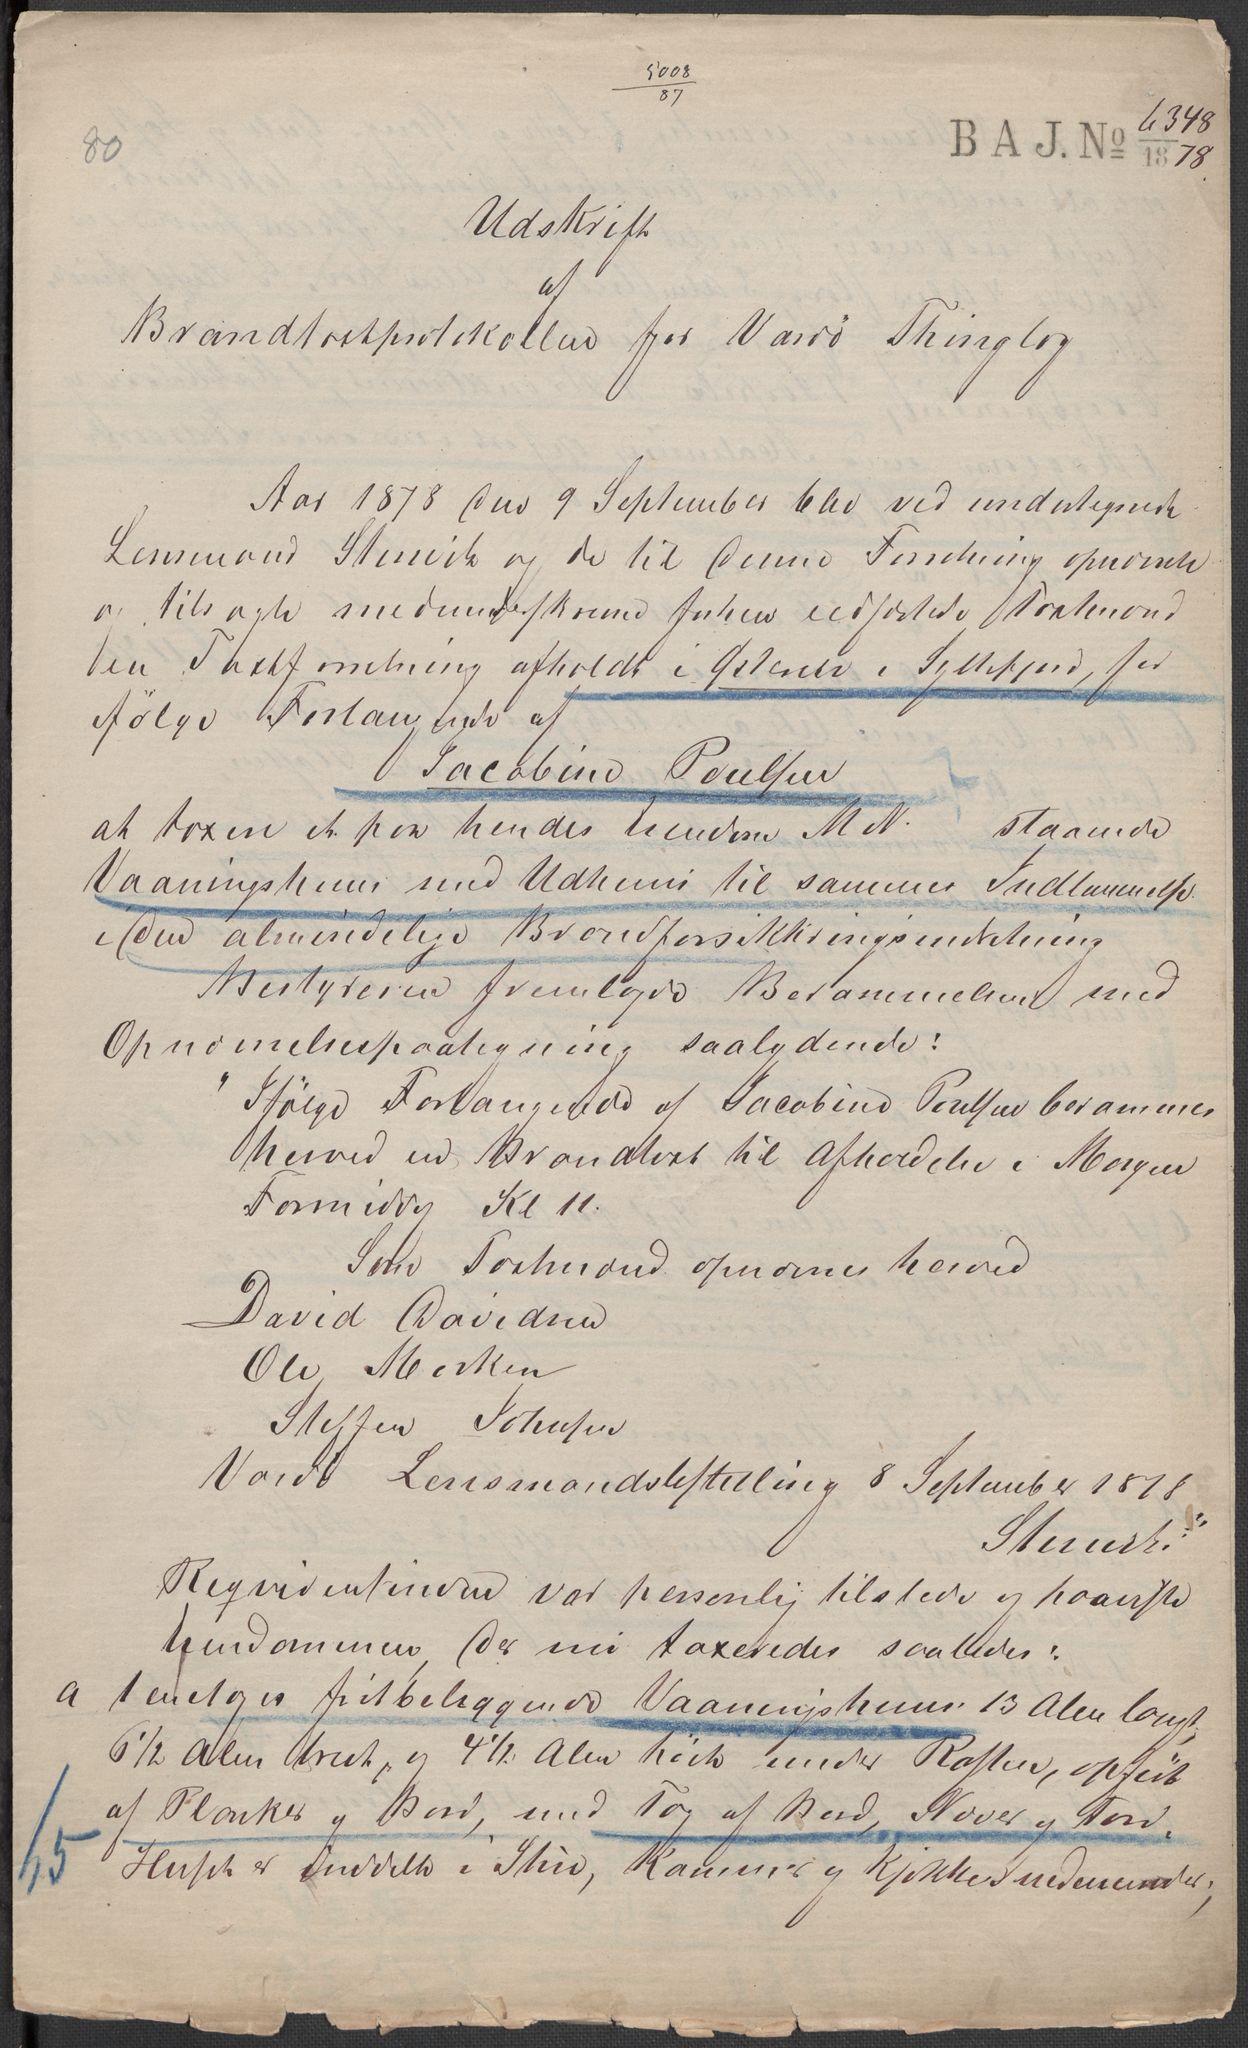 5008
87
80
B A J. No 6348
18 78.
Udskrift
af
Brandtaxtprotokollen for Vardö Thinglag
Aar 1878 den 9 September blev ved undertegnede
Lensmand og de til denne Forretning opnævnte
og tilsagte medunderskrevne forhen edfæstede Taxtmænd
en Taxtforretning afholdt i i Syltefjord, for
ifölge Forlangende af
Jacobine Poulsen
at taxere et paa hendes Eiendom M N. staaende
Vaaningshuus med Udhuus til sammes Indlemmelse
i den almindelige Brandforsikkringsindretning
Bestyreren fremlagde Berammelsen med
Opnævnelsespaategning saalydende:
"Ifölge Forlangende af Jacobine Poulsen berammes
herved en Brandtaxt til Afholdelse i Morgen
Formiddag Kl 11.
Som Taxtmænd opnævnes herved
David Davidsen
Ole
Steffen Johnsen
Vardö Lensmandsbestilling 8 September 1878
Reqvirentinden var personlig tilstede og paaviste
Eiendommen, der nu taxeredes saaledes:
a 1 enetages fritbeliggende Vaaningshuus 13 Alen langt,
6 1/2 Alen bredt, og 4 1/2 Alen höit under Raften, opfört
af Planker og Bord, med Tag af Bord, Næver og Torv.
Huset er inddelt i Stue, Kammer og Kjökken nedenunder;
15